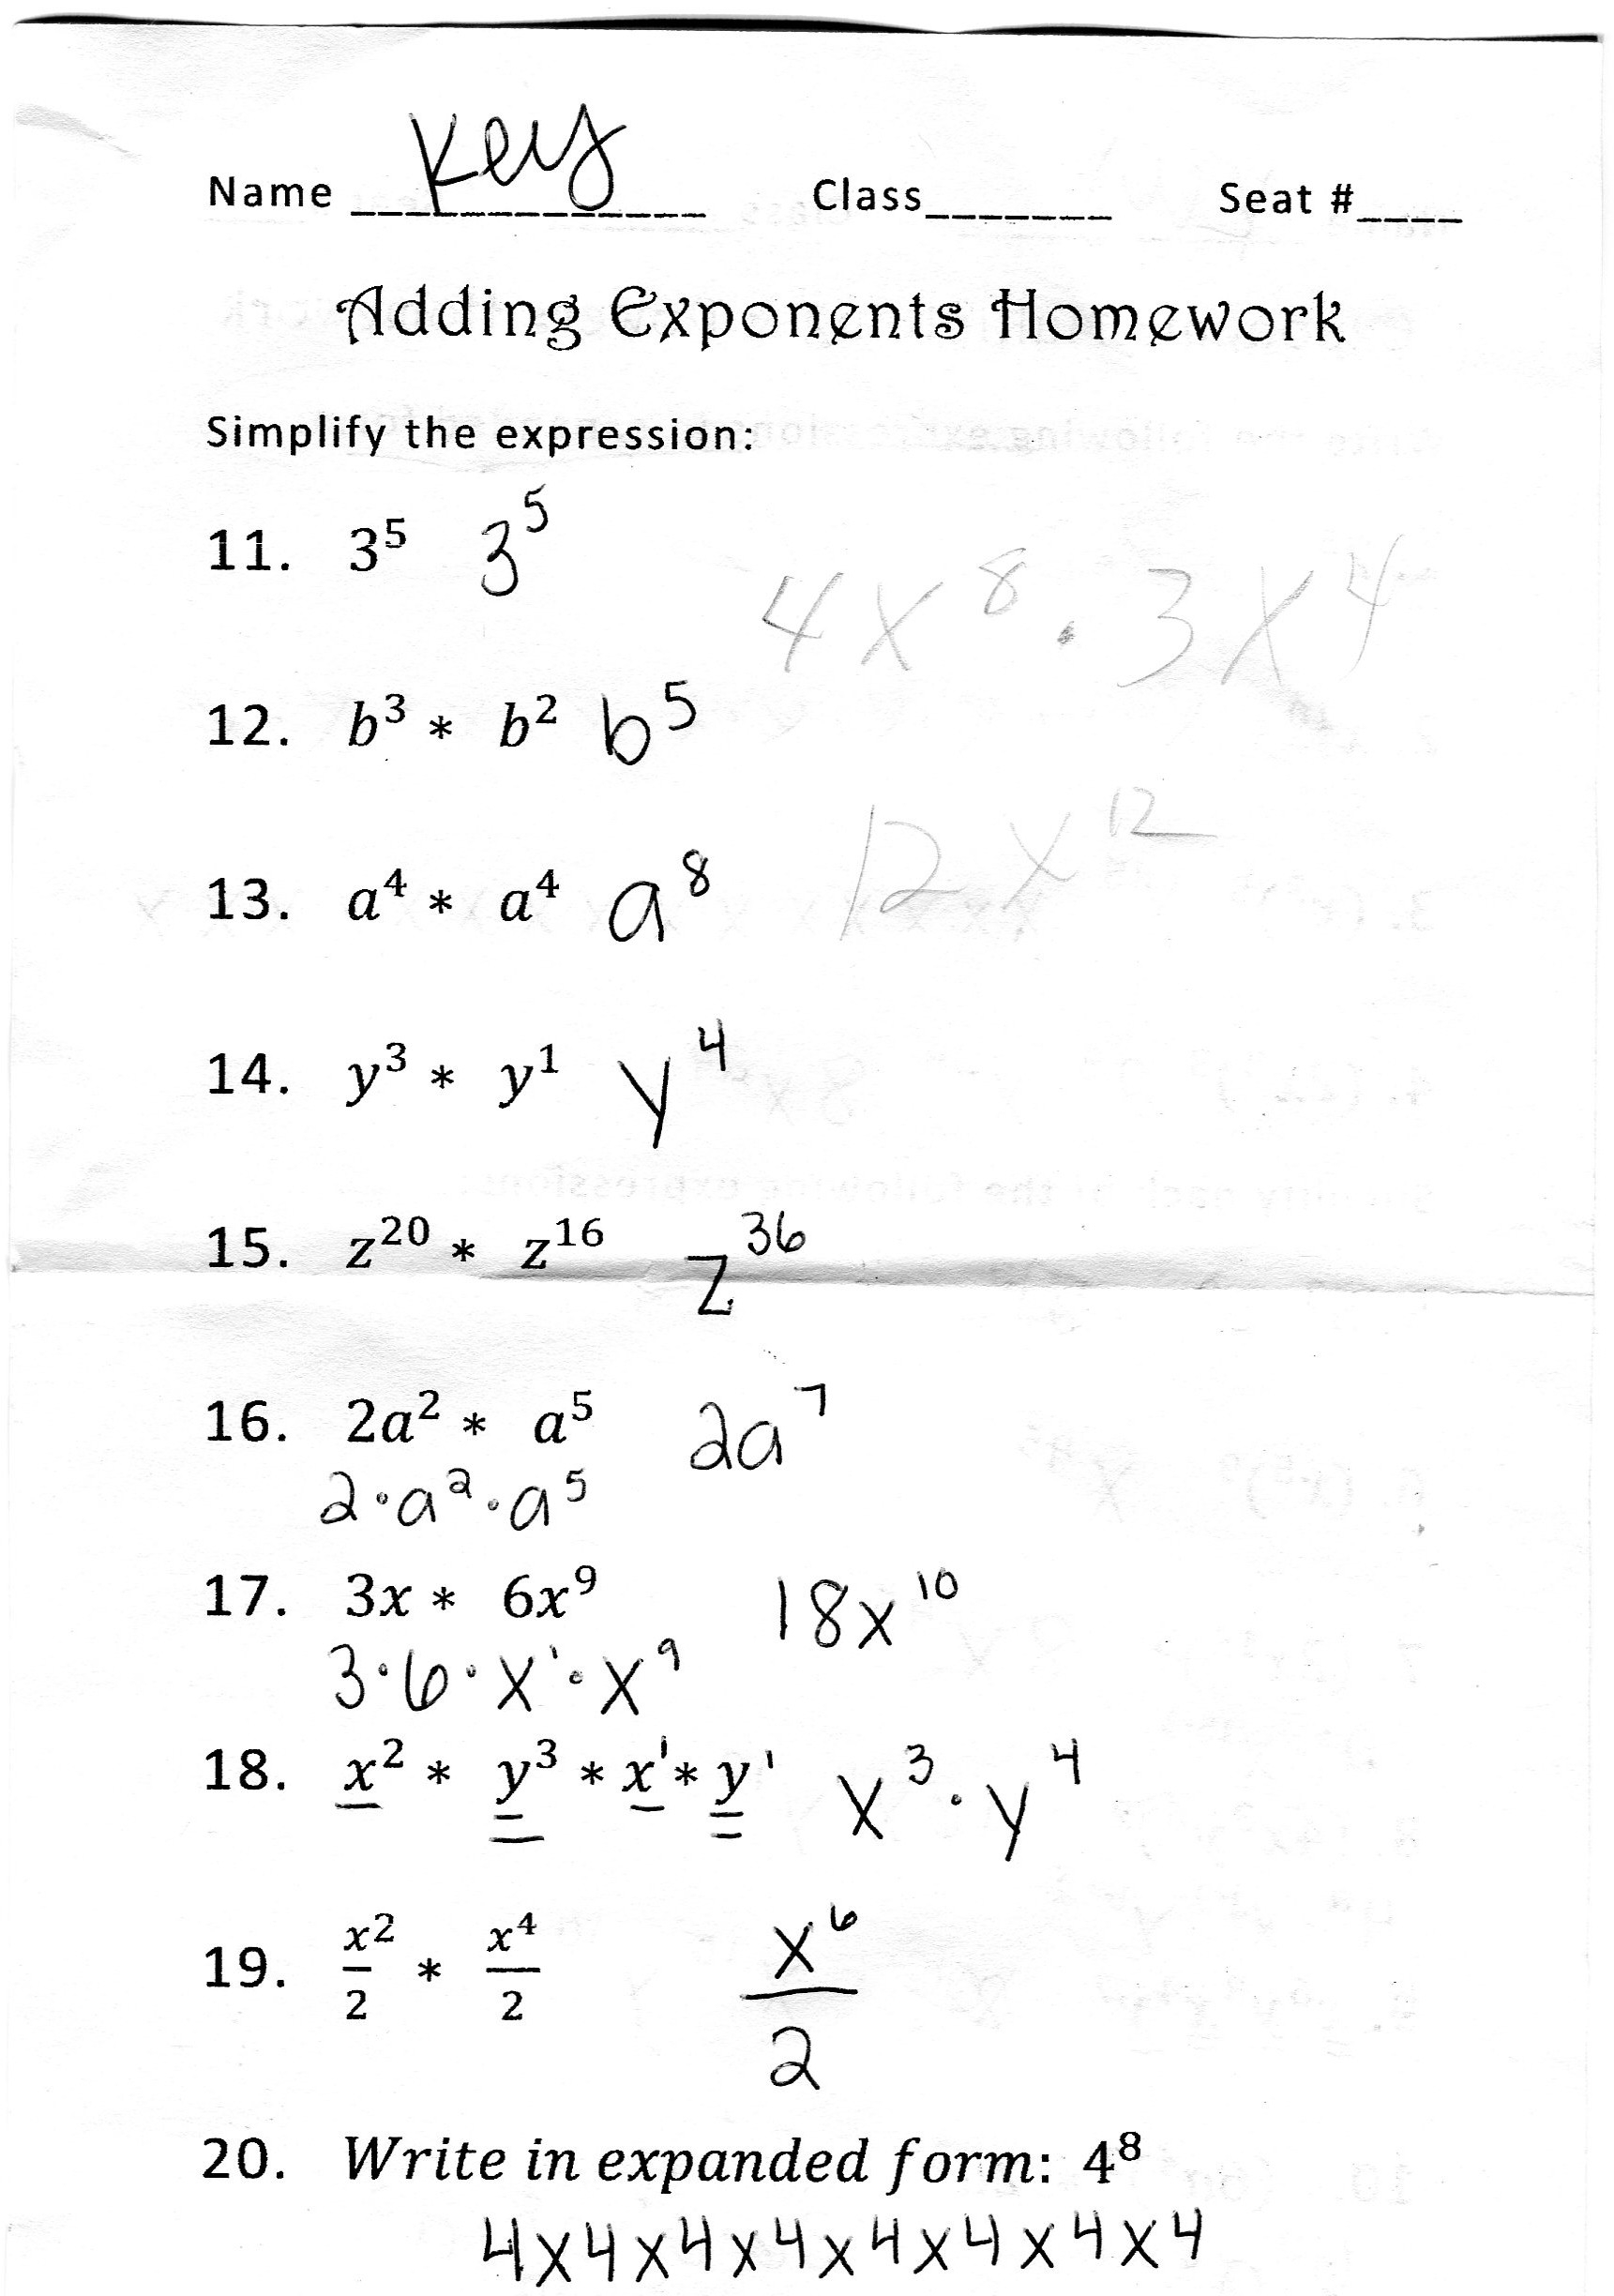 Name Key Class_______ Seat #____
Adding Exponents Homework
Simplify the expression:
11. 3⁵ 3⁵
4x⁸ · 3x⁴
12. b³ * b² b⁵
12x¹²
13. a⁴ * a⁴ a⁸
14. y³ * y¹ y⁴
15. z²⁰ * z¹⁶ z³⁶
16. 2a² * a⁵ 2a⁷
2·a²·a⁵
17. 3x * 6x⁹ 18x¹⁰
3·6·x¹·x⁹
18. x² * y³ * x¹ * y¹ x³·y⁴
19. x²/2 * x⁴/2 x⁶/2
20. Write in expanded form: 4⁸
4x4x4x4x4x4x4x4